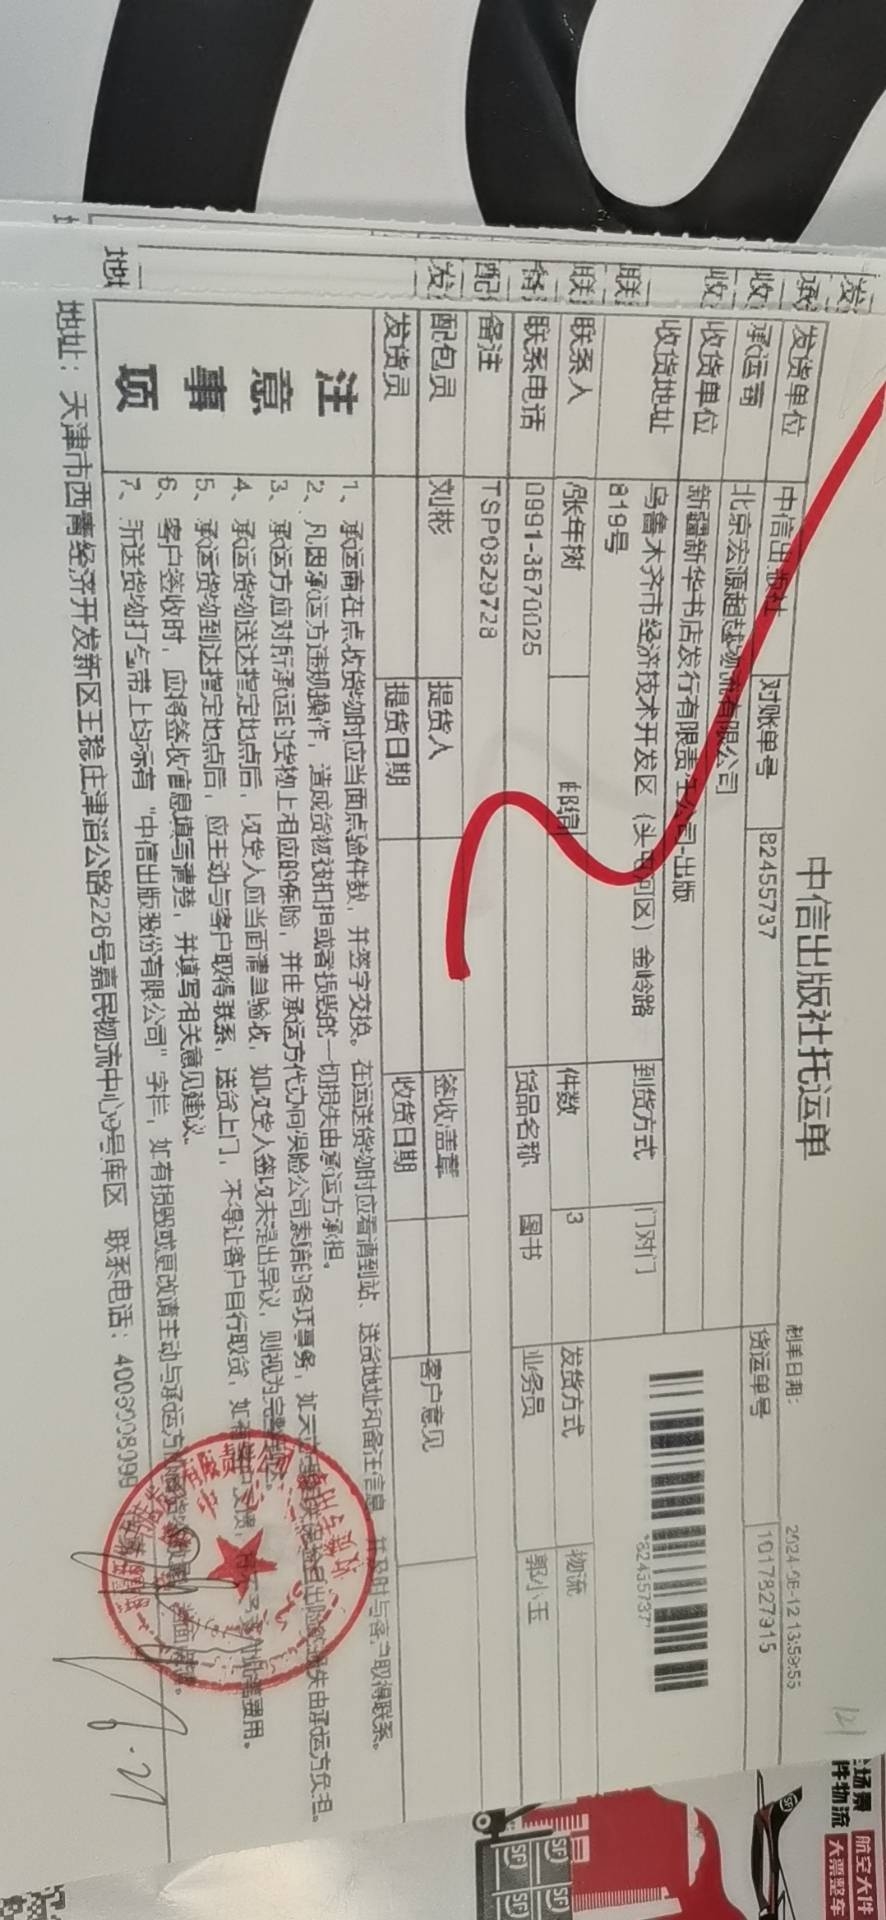 中信出版社托运单
制单日期： 2024-06-12 13:59:55
发货单位 中信出版社 对账单号 82455737 货运单号 1017827915
承运商 北京宏源超越物流有限公司
收货单位 新疆新华书店发行有限责任公司-出版
收货地址 乌鲁木齐市经济技术开发区（头屯河区）金岭路 到货方式 门对门
819号
*82455737*
联系人 张年树 邮编 件数 3 发货方式 物流
联系电话 0991-3670025 货品名称 图书 业务员 郭小玉
备注 TSP0629728
配包员 刘彬 提货人 签收盖章 客户意见
发货员 提货日期 收货日期
注意事项
1、承运商在点收货物时应当面点验件数，并签字交换。在运送货物时应看请到站、送货地址和备注信息，并及时与客户取得联系。
2、凡因承运方违规操作，造成货物被扣担或者损毁的一切损失由承运方承担。
3、承运方应对所承运的货物上相应的保险，并由承运方代办向保险公司索赔的各项事务，如未 损失由承运方负担。
4、承运货物送达指定地点后，收货人应当面清点验收，如收货人签收未提出异议，则视为完整
5、承运货物到达指定地点后，应主动与客户取得联系，送货上门，不得让客户自行取货，如有 费用。
6、客户签收时，应将签收信息填写清楚，并填写相关意见建议。
7、所送货物打包带上均标有“中信出版股份有限公司”字样，如有损毁或更改请主动与承运方
地址：天津市西青经济开发新区王稳庄津淄公路226号嘉民物流中心9号库区 联系电话：4006008099
12
场景
件物流
航空大件
大票整车
SF
SF
SF
SF
SF